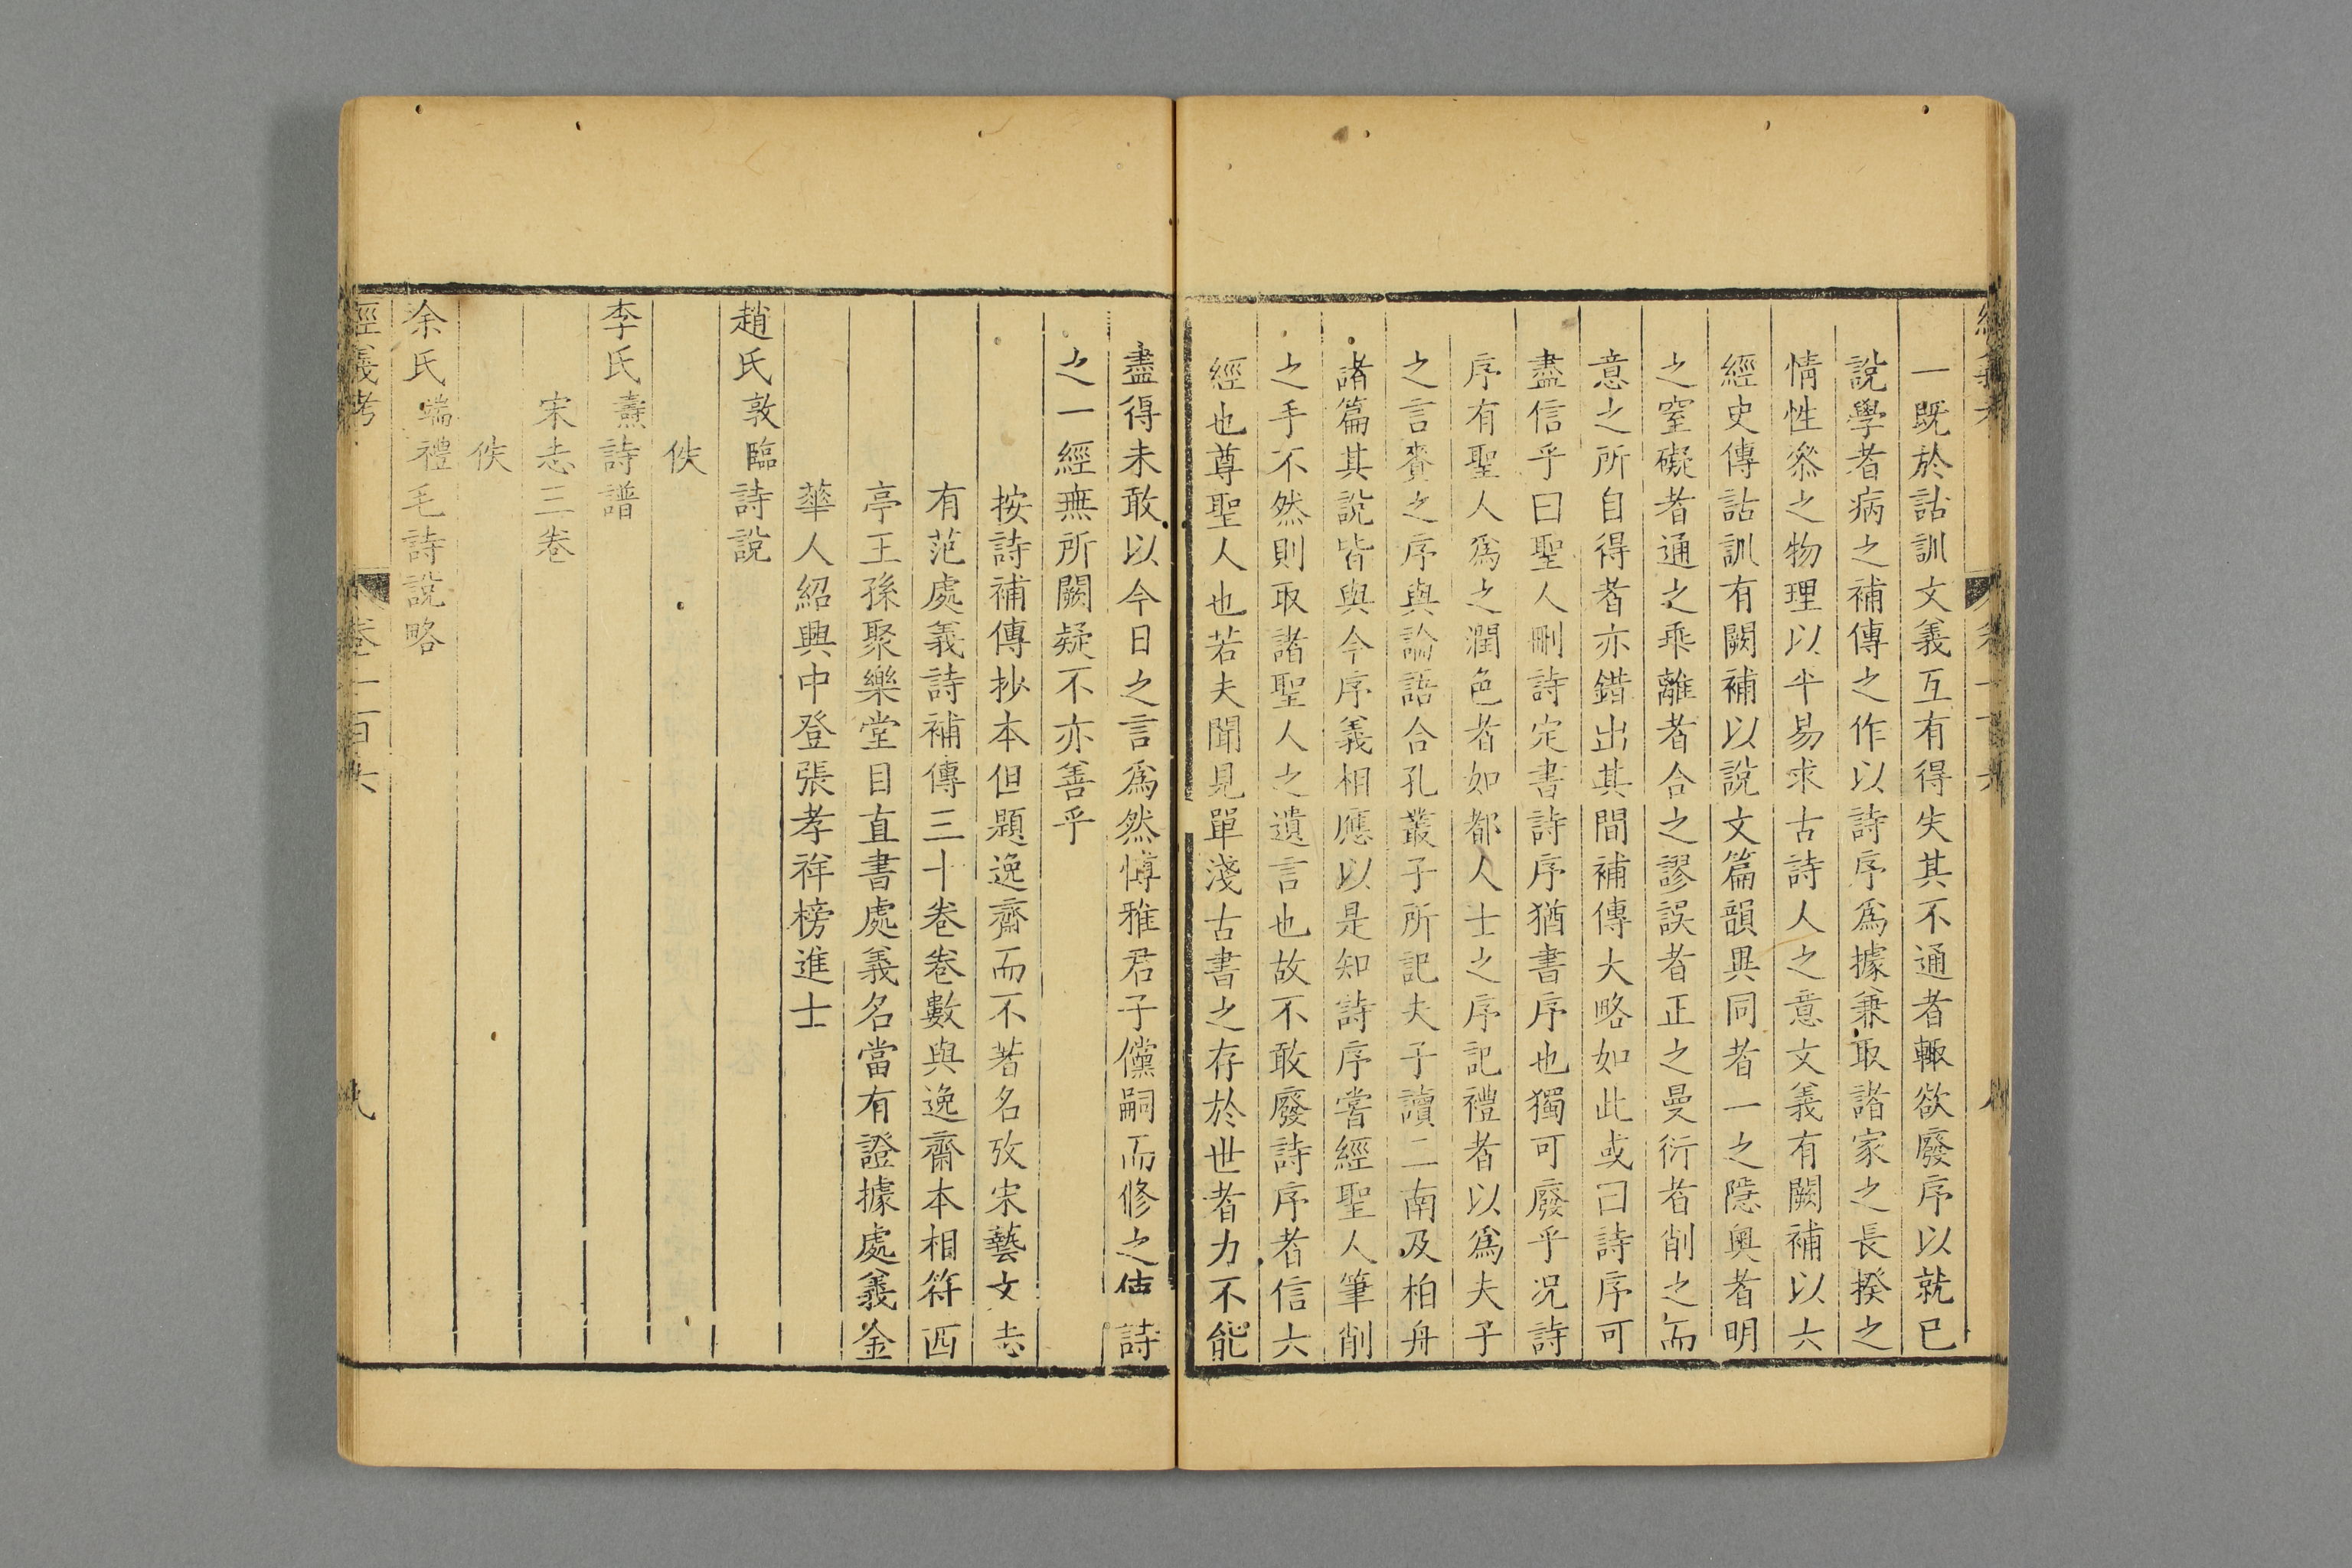 一既於詁訓文義互有得失其不通者輙欲廢序以就已
說學者病之補傳之作以詩序爲據兼取諸家之長揆之
情性叅之物理以平易求古詩人之意文義有闕補以六
經史傳詁訓有闕補以說文篇韻異同者一之隱奧者明
之窒礙者通之乖離者合之謬誤者正之曼衍者削之而
意之所自得者亦錯出其間補傳大略如此或曰詩序可
盡信乎曰聖人刪詩定書詩序猶書序也獨可廢乎况詩
序有聖人爲之潤色者如都人士之序記禮者以爲夫子
之言賚之序與論語合孔叢子所記夫子讀二南及柏舟
諸篇其說皆與今序義相應以是知詩序嘗經聖人筆削
之手不然則取諸聖人之遺言也故不敢廢詩序者信六
經也尊聖人也若夫聞見單淺古書之存於世者力不能
盡得未敢以今日之言爲然博雅君子儻嗣而修之俾詩
之一經無所闕疑不亦善乎
按詩補傳抄本但題逸齋而不著名攷宋藝文志
有范處義詩補傳三十卷卷數與逸齋本相符西
亭王孫聚樂堂目直書處義名當有證據處義金
華人紹興中登張孝祥榜進士
趙氏敦臨詩說
佚
李氏燾詩譜
宋志三卷
佚
余氏端禮毛詩說略
經義考 卷一百六 九